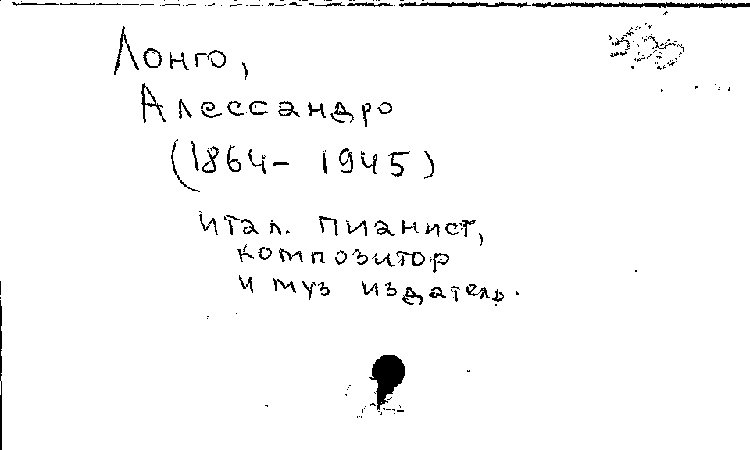 Лонго,
Алессандро
(1864- 1945)
итал. пианист,
композитор
и муз издатель.